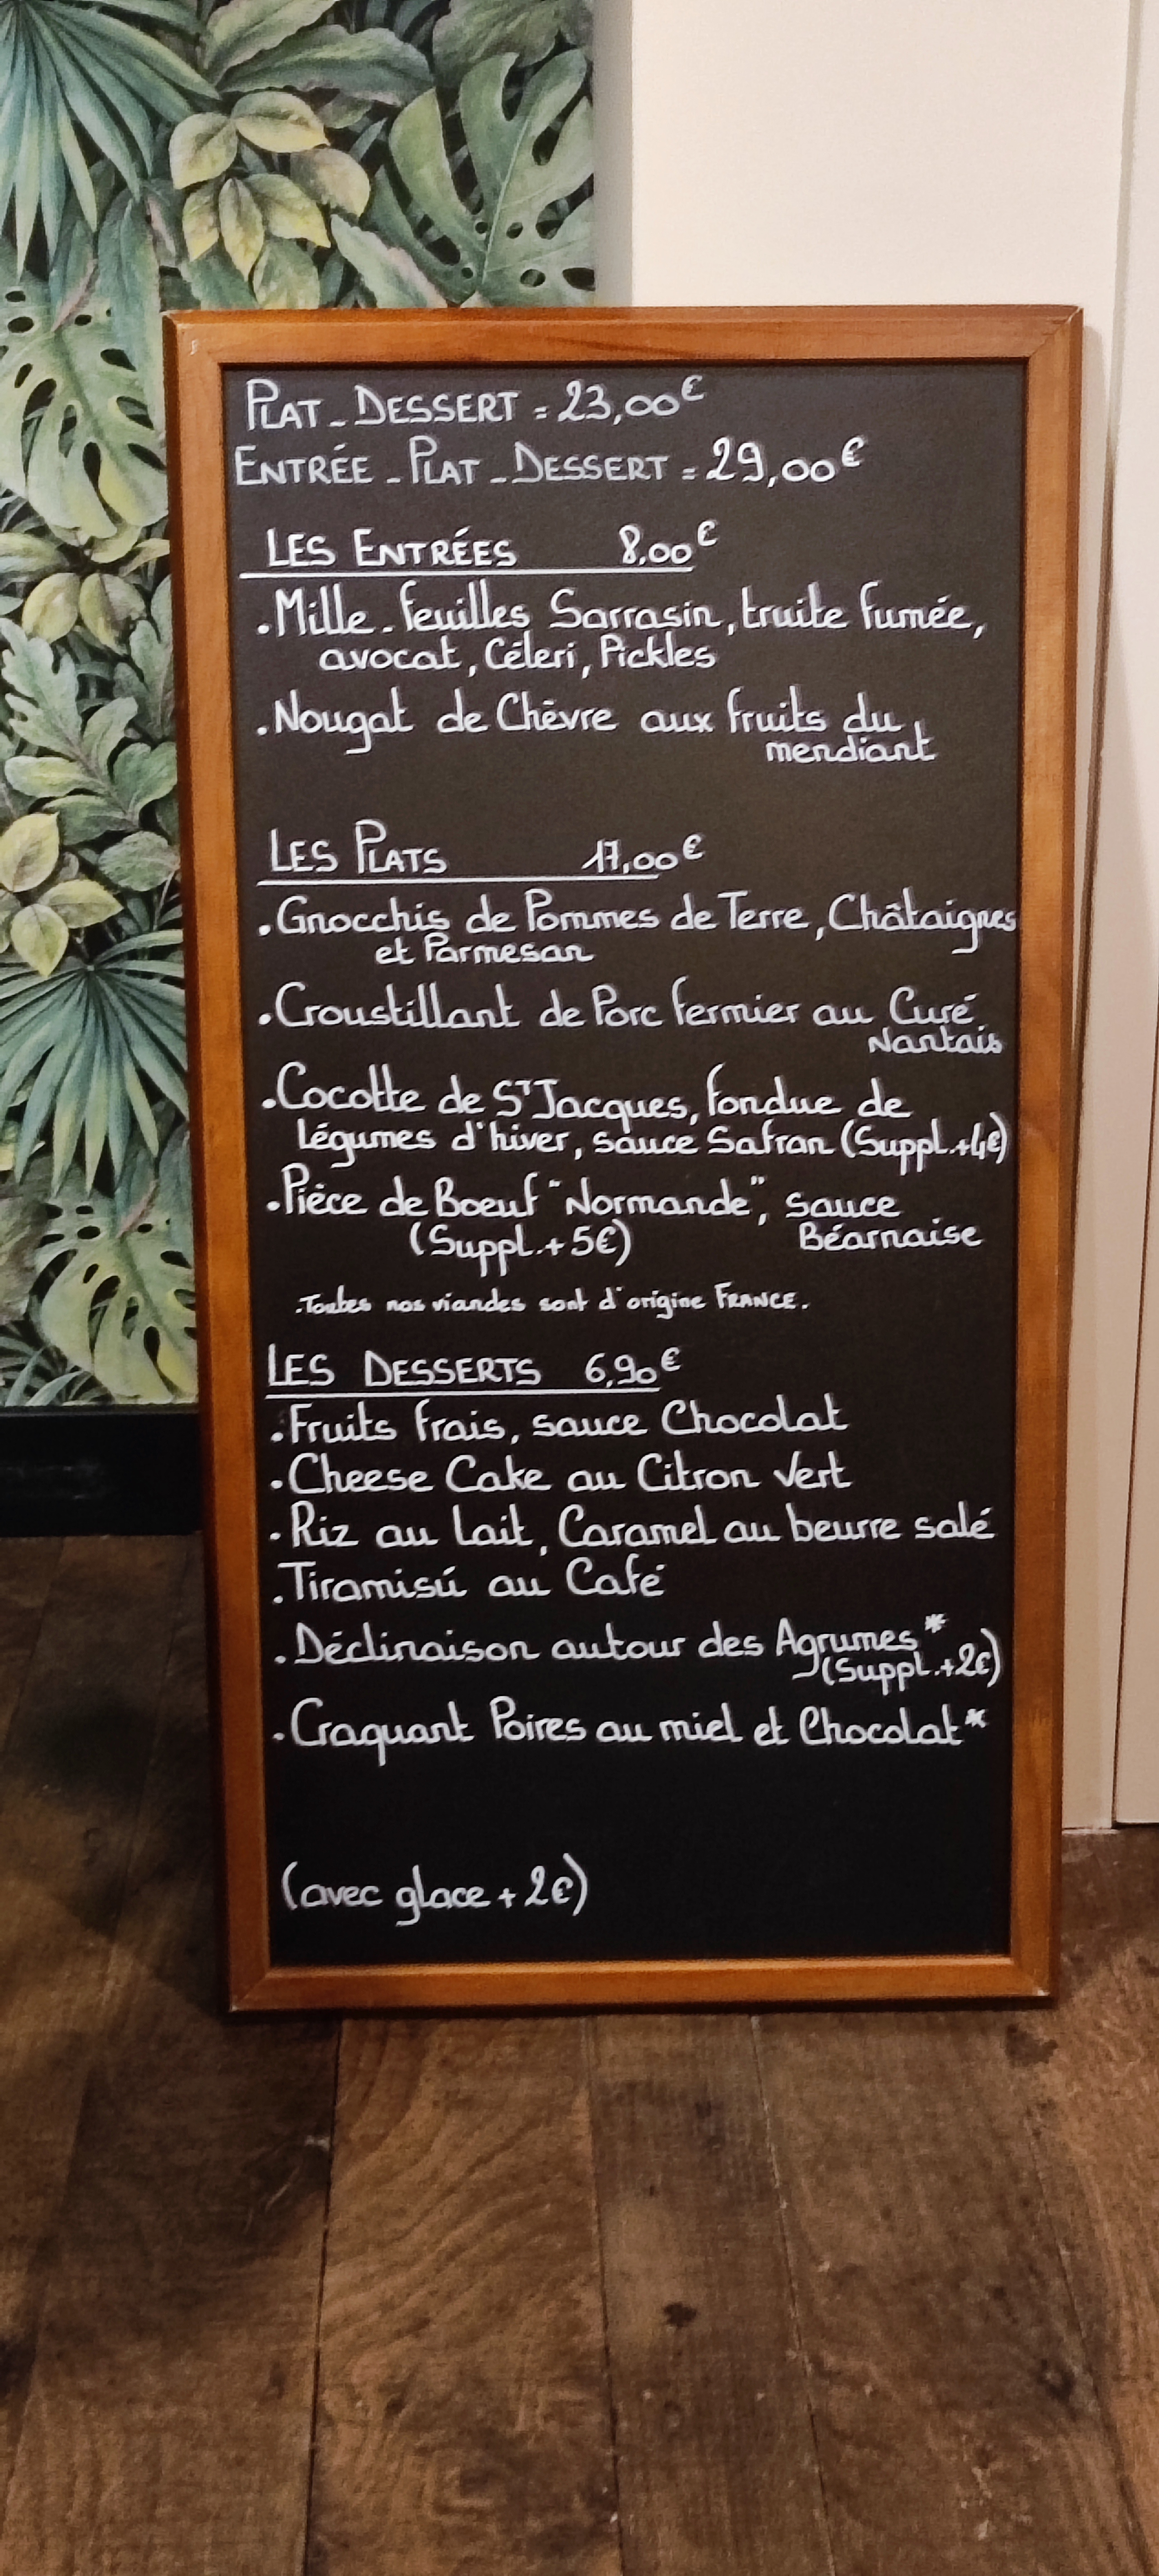 PLAT - DESSERT = 23,00€
ENTRÉE - PLAT - DESSERT = 29,00€
LES ENTRÉES 8.00€
. Mille-feuilles Sarrasin, truite fumée,
avocat, Céleri, Pickles
. Nougat de Chèvre aux fruits du
mendiant
LES PLATS 17,00€
. Gnocchis de Pommes de Terre, Châtaignes
et Parmesan
. Croustillant de Porc fermier au Curé
Nantais
. Cocotte de St Jacques, fondue de
légumes d'hiver, sauce Safran (Suppl.+4€)
. Pièce de Boeuf "Normande", sauce
(Suppl.+5€) Béarnaise
. Toutes nos viandes sont d'origine FRANCE.
LES DESSERTS 6,90€
. Fruits frais, sauce Chocolat
. Cheese Cake au Citron Vert
. Riz au lait, Caramel au beurre salé
. Tiramisú au Café
. Déclinaison autour des Agrumes*
(Suppl.+2€)
. Craquant Poires au miel et Chocolat*
(avec glace + 2€)